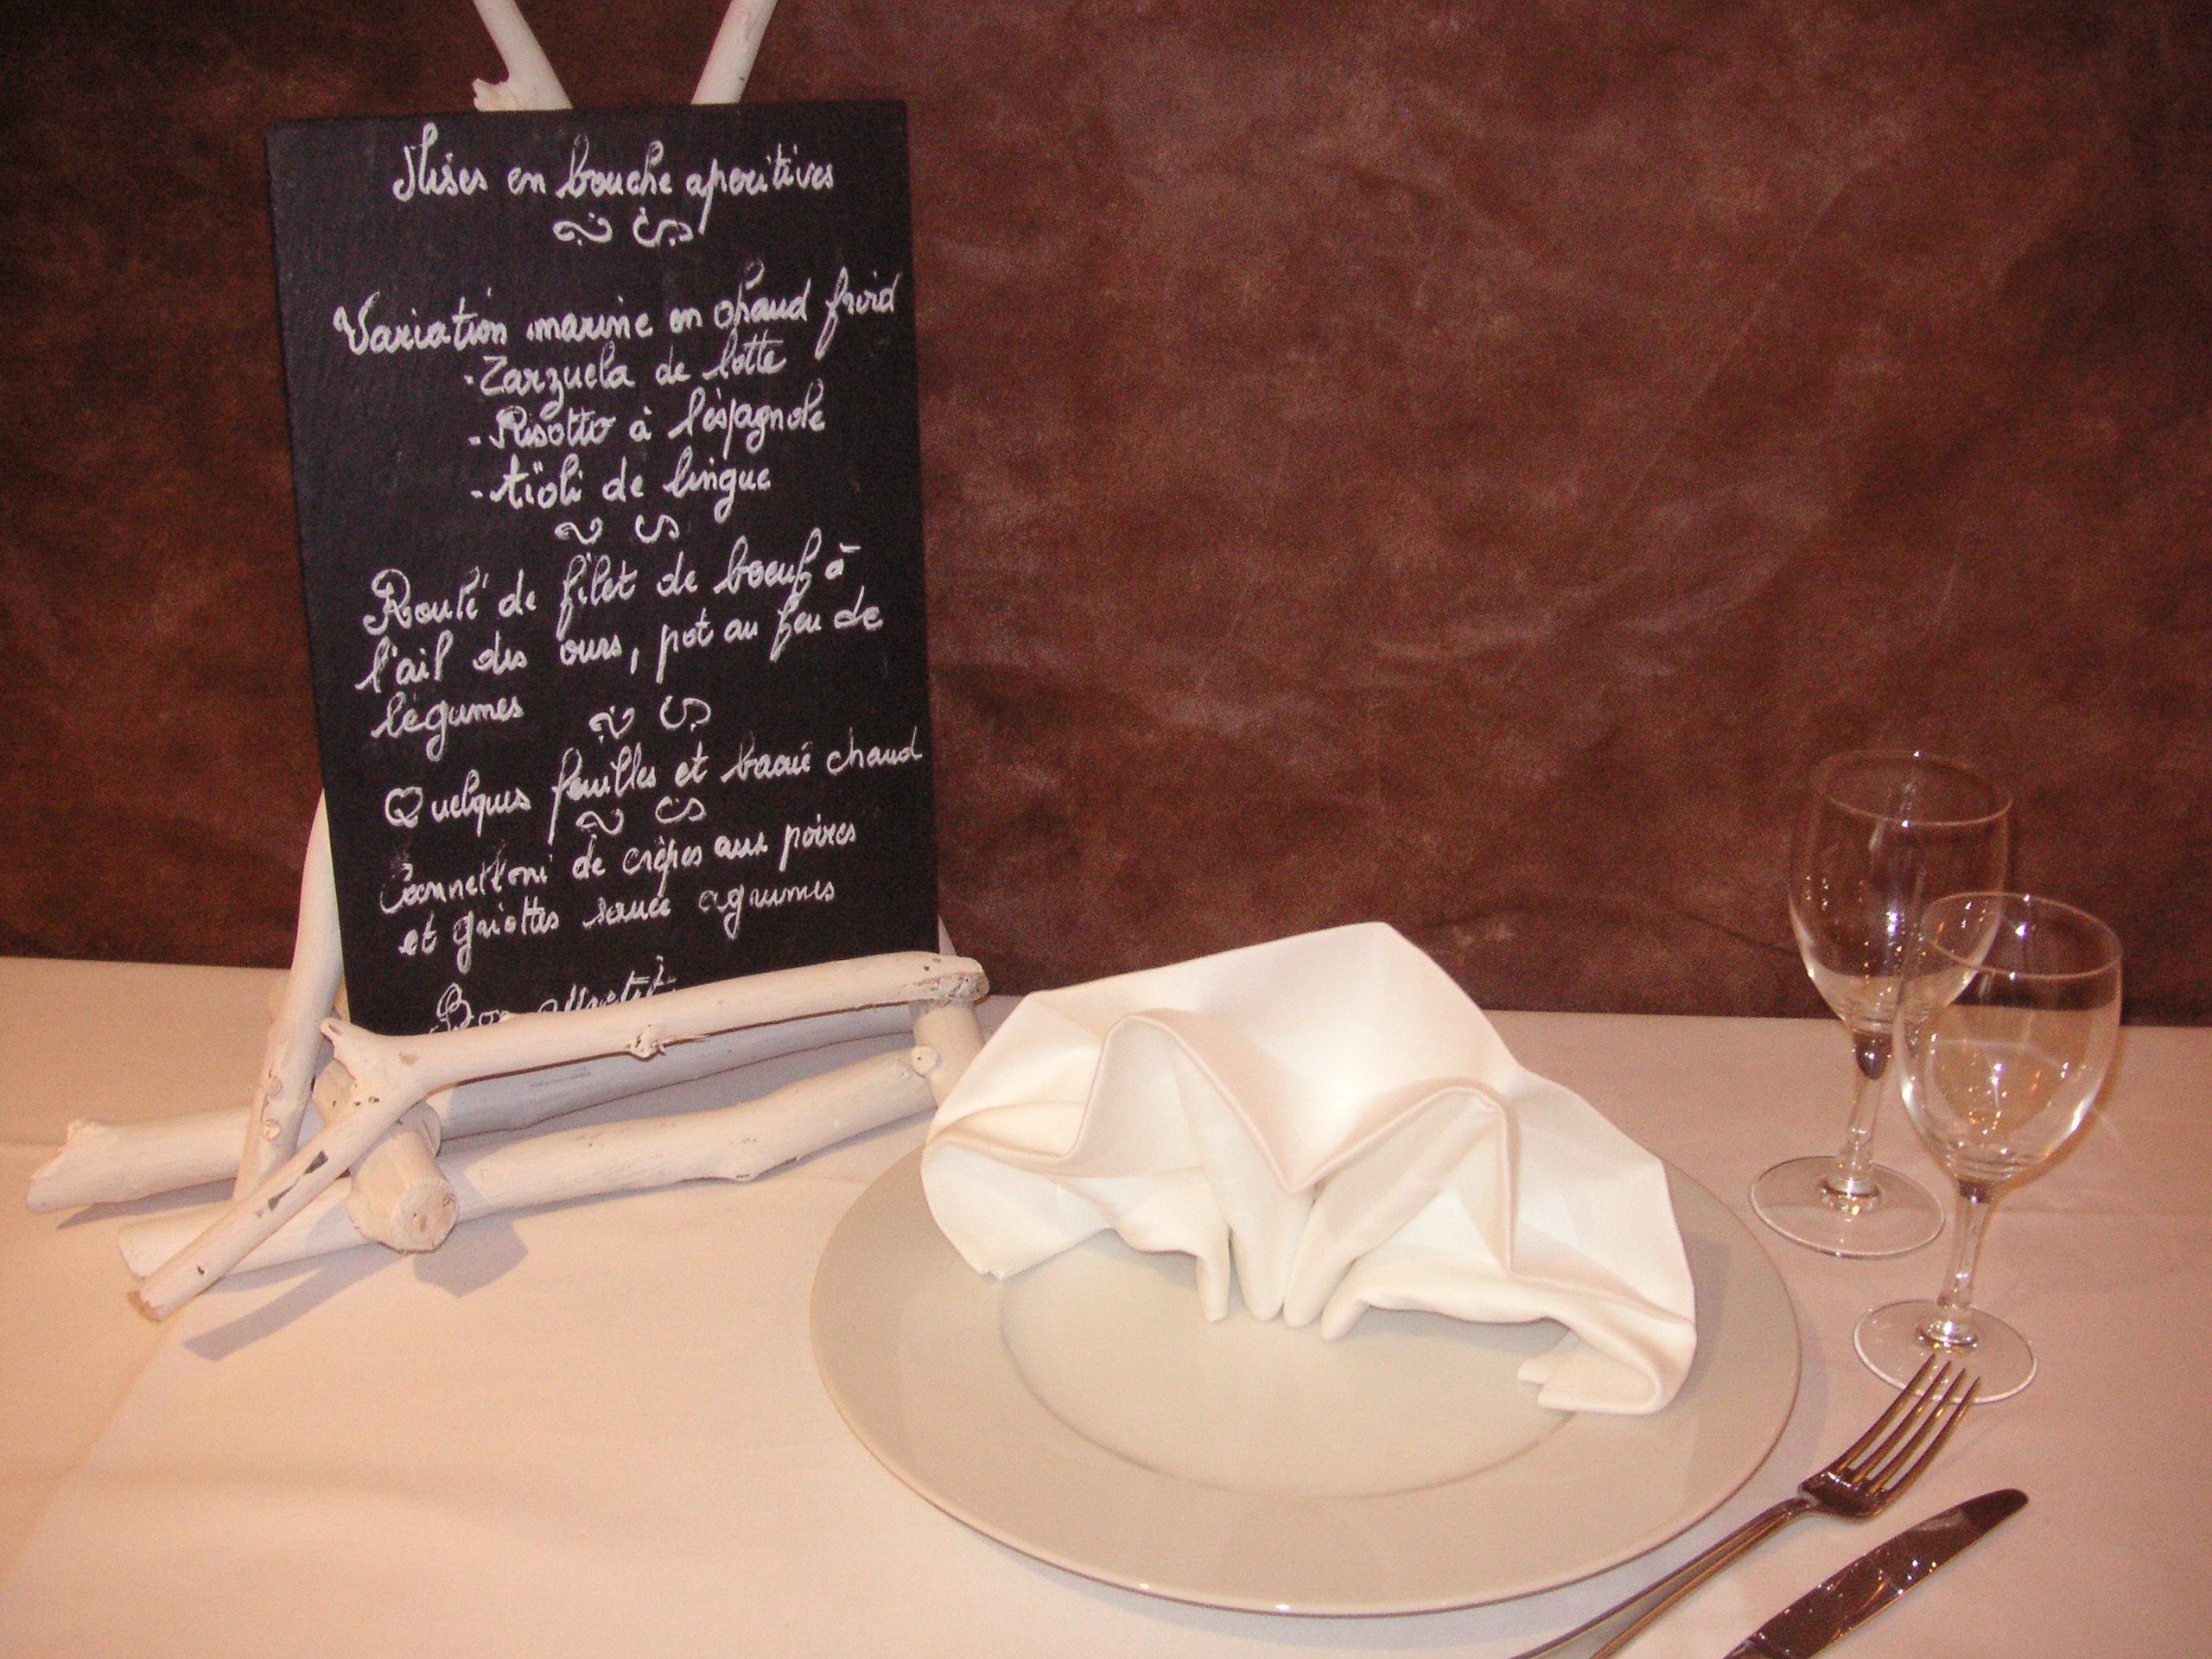 Mises en bouche aperitives
Variation marine en chaud froid
- Zarzuela de lotte
- Risotto à l'espagnole
- Aïoli de lingue
Roulé de filet de boeuf à
l'ail des ours, pot au feu de
légumes
Quelques feuilles et chaud
Cannelloni de crêpes aux poires
et griottes sauce agrumes
Bon